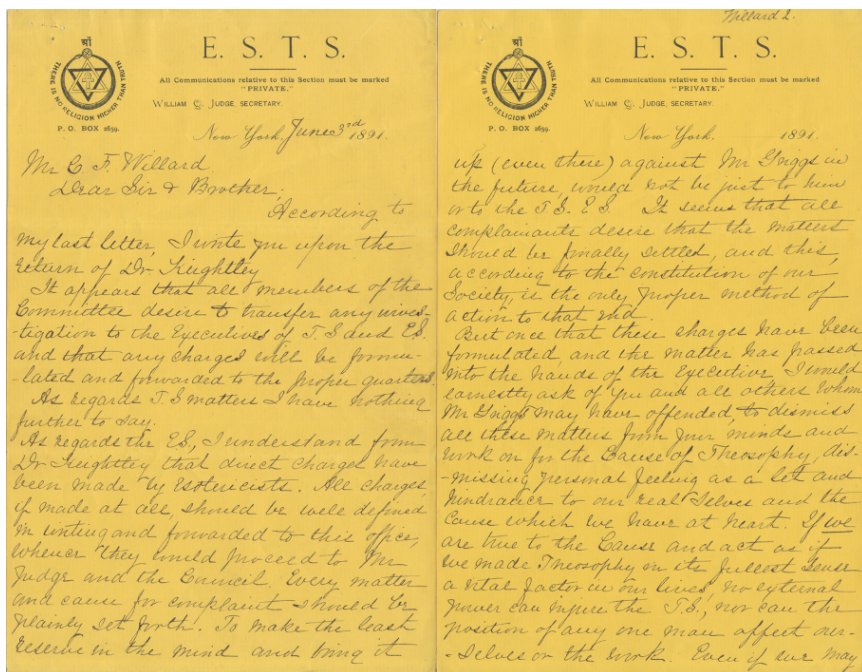 श्रीं
THERE IS NO RELIGION HIGHER THAN TRUTH
P. O. BOX 2659.
E. S. T. S.
All Communications relative to this Section must be marked
"PRIVATE."
WILLIAM Q. JUDGE, SECRETARY.
New York, June 3rd 1891.
Mr C. F. Willard
Dear Sir & Brother,
According to
my last letter, I write you upon the
return of Dr. Keightley
It appears that all members of the
Committee desire to transfer any inves-
-tigation to the Executives of T. S and ES.
and that any charges will be formu-
-lated and forwarded to the proper quarters.
As regards T. S matters I have nothing
further to say.
As regards the ES., I understand from
Dr Keightley that direct charges have
been made by Esotericists. All charges,
if made at all, should be well defined
in writing and forwarded to this office,
whence they would proceed to Mr
Judge and the Council. Every matter
and cause for complaint should be
plainly set forth. To make the least
reserve in the mind and bring it
Willard 2.
श्रीं
THERE IS NO RELIGION HIGHER THAN TRUTH
P. O. BOX 2659.
E. S. T. S.
All Communications relative to this Section must be marked
"PRIVATE."
WILLIAM Q. JUDGE, SECRETARY.
New York, 1891.
up (even there) against Mr Griggs in
the future, would not be just to him
or to the T. S. E. S. It seems that all
complainants desire that the matters
should be finally settled, and this,
according to the constitution of our
Society, is the only proper method of
action to that end.
But once that these charges have been
formulated, and the matter has passed
into the hands of the Executive I would
earnestly ask of you and all others whom
Mr Griggs may have offended, to dismiss
all these matters from your minds and
work on for the Cause of Theosophy, dis-
-missing personal feeling as a let and
hindrance to our real Selves and the
Cause which we have at heart. If we
are true to the Cause and act as if
we made Theosophy in its fullest sense
a vital factor in our lives, no external
power can injure the T.S., nor can the
position of any one man affect our-
-selves or the work. Even if we may